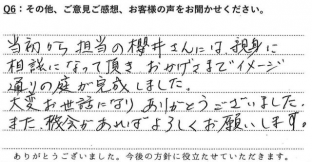 Q6：その他、ご意見ご感想、お客様の声をお聞かせください。
当初から担当の櫻井さんには親身に
相談になって頂きおかげさまでイメージ
通りの庭が完成しました。
大変お世話になりありがとうございました。
また、機会があればよろしくお願いします。
ありがとうございました。今後の方針に役立たせていただきます。